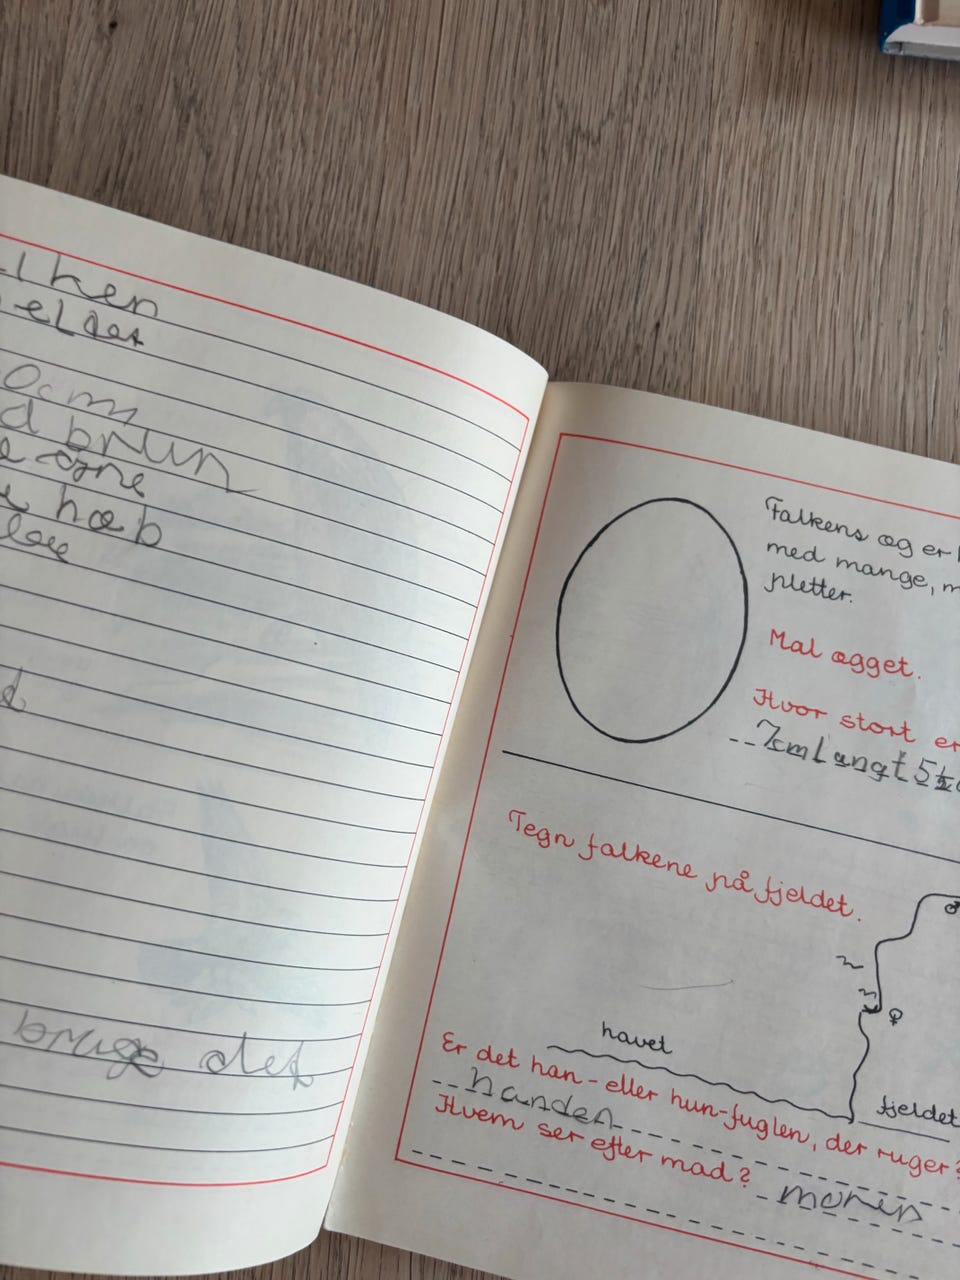 lken
eldet
0cm
d brun
e øjne
e hæb
d
bruge det
Falkens æg er
med mange,
pletter.
Mal ægget.
Hvor stort er
7cm Langt 5½
Tegn falkene på fjeldet.
♂
♀
havet
fjeldet
Er det han- eller hun-fuglen, der ruger?
hunden
Hvem ser efter mad? moren